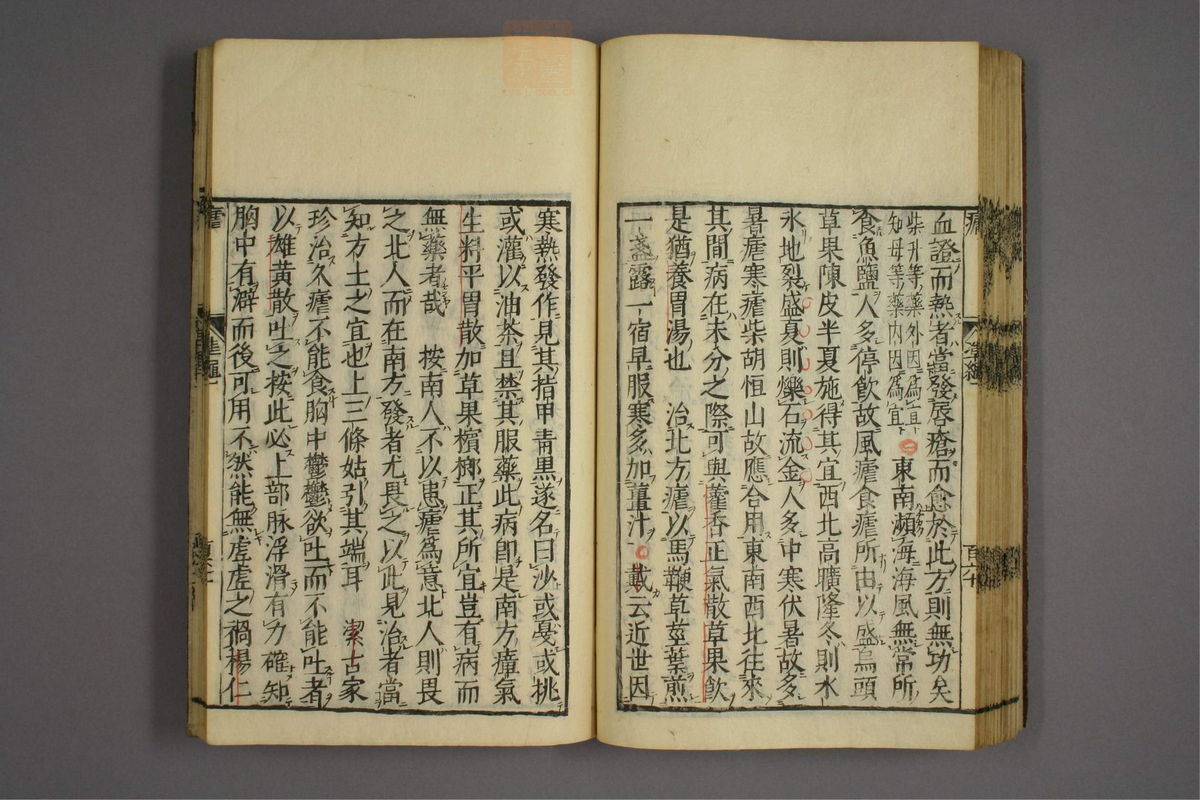 血證而熱者當發唇瘡而愈於此方則無功矣
柴升等藥外因爲宜
知母等藥內因爲宜
東南瀕海海風無常所
食魚鹽人多停飲故風瘧食瘧所由以盛烏頭
草果陳皮半夏施得其宜西北高曠隆冬則水
氷地裂盛夏則爍石流金人多中寒伏暑故多
暑瘧寒瘧柴胡恒山故應合用東南西北往來
其間病在未分之際可與藿香正氣散草果飲
是猶養胃湯也 治北方瘧以馬鞭草莖葉煎
一盞露一宿早服寒多加薑汁 戴云近世因
寒熱發作見其指甲青黑遂名曰沙或戞或挑
或灌以油茶且禁其服藥此病即是南方瘴氣
生料平胃散加草果檳榔正其所宜豈有病而
無藥者哉 按南人不以患瘧爲意北人則畏
之北人而在南方發者尤畏之以此見治者當
知方土之宜也上三條姑引其端耳 潔古家
珍治久瘧不能食胸中鬱鬱欲吐而不能吐者
以雄黃散吐之按此必上部脉浮滑有力確知
胸中有澼而後可用不然能無虛虛之禍楊仁